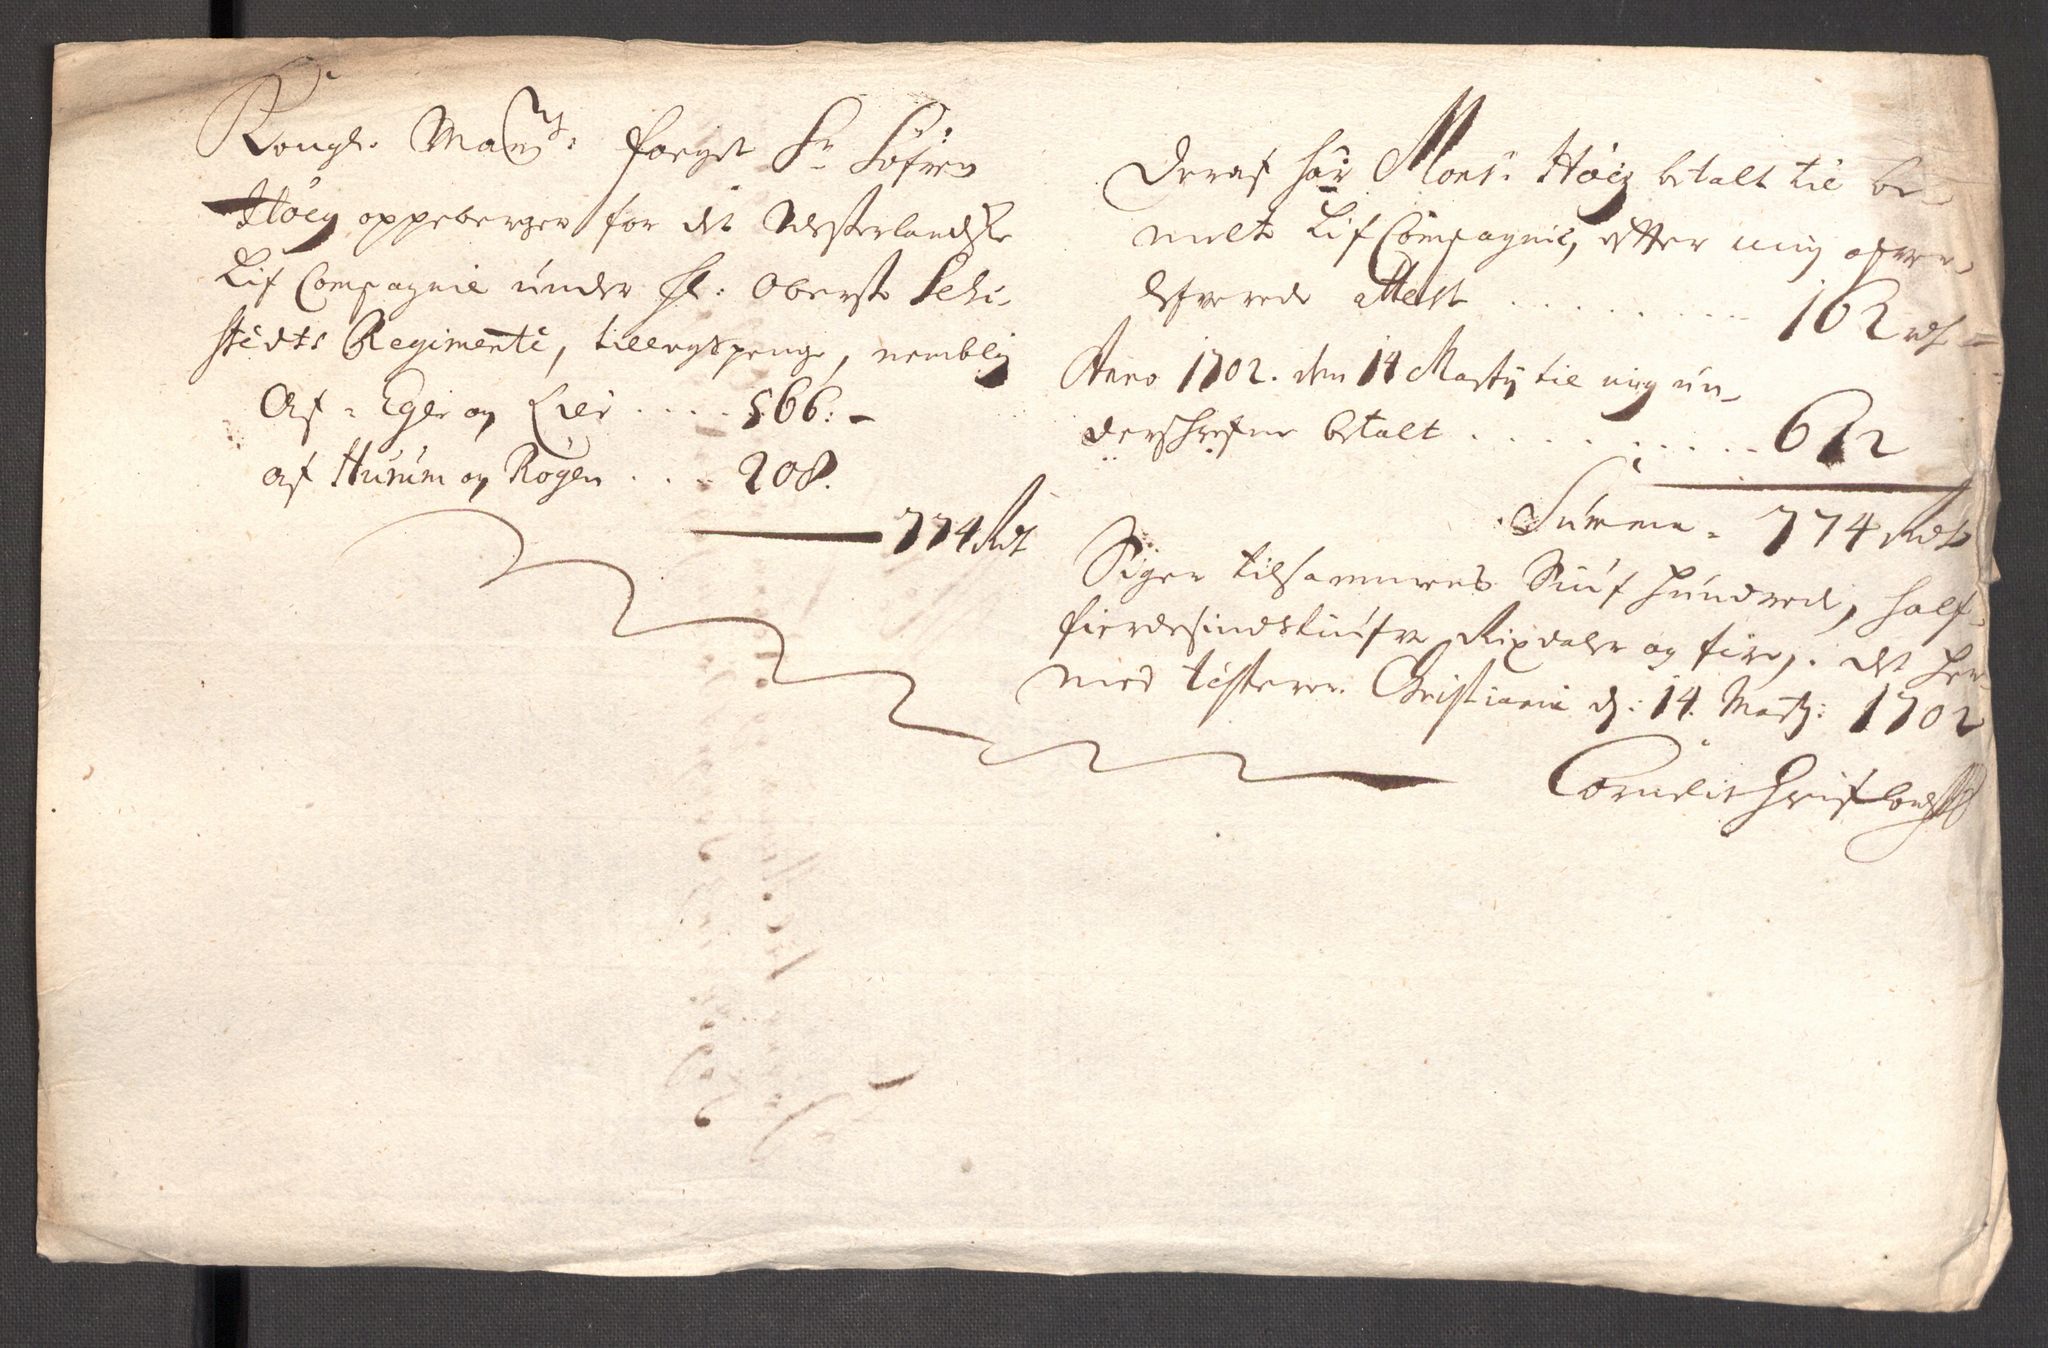 Kongl. Mayts: foeget Sr Søfren
Høeg oppeberger for det Westerlandske
Lif Compagnie under Hr: Oberste Schi-
stedts Regimente, tillegspenge, nemblig
Af - Eger og Lier .... 566: -
Af Hurum og Røgen .... 208.
774 Rdr
Deraf har Monsr Høeg betalt til be-
melte Lif Compagnie, efter min
attest ......... 162 rdr -
Anno 1702. den 14 Marty til mig un-
derschrefne betalt ......... 612
Summa - 774 Rdr
Siger tilsammens Siuf hundrede, half-
fierdesindstiufve Rixdaler og fire, det her
med Christiania d: 14. Marty: 1702